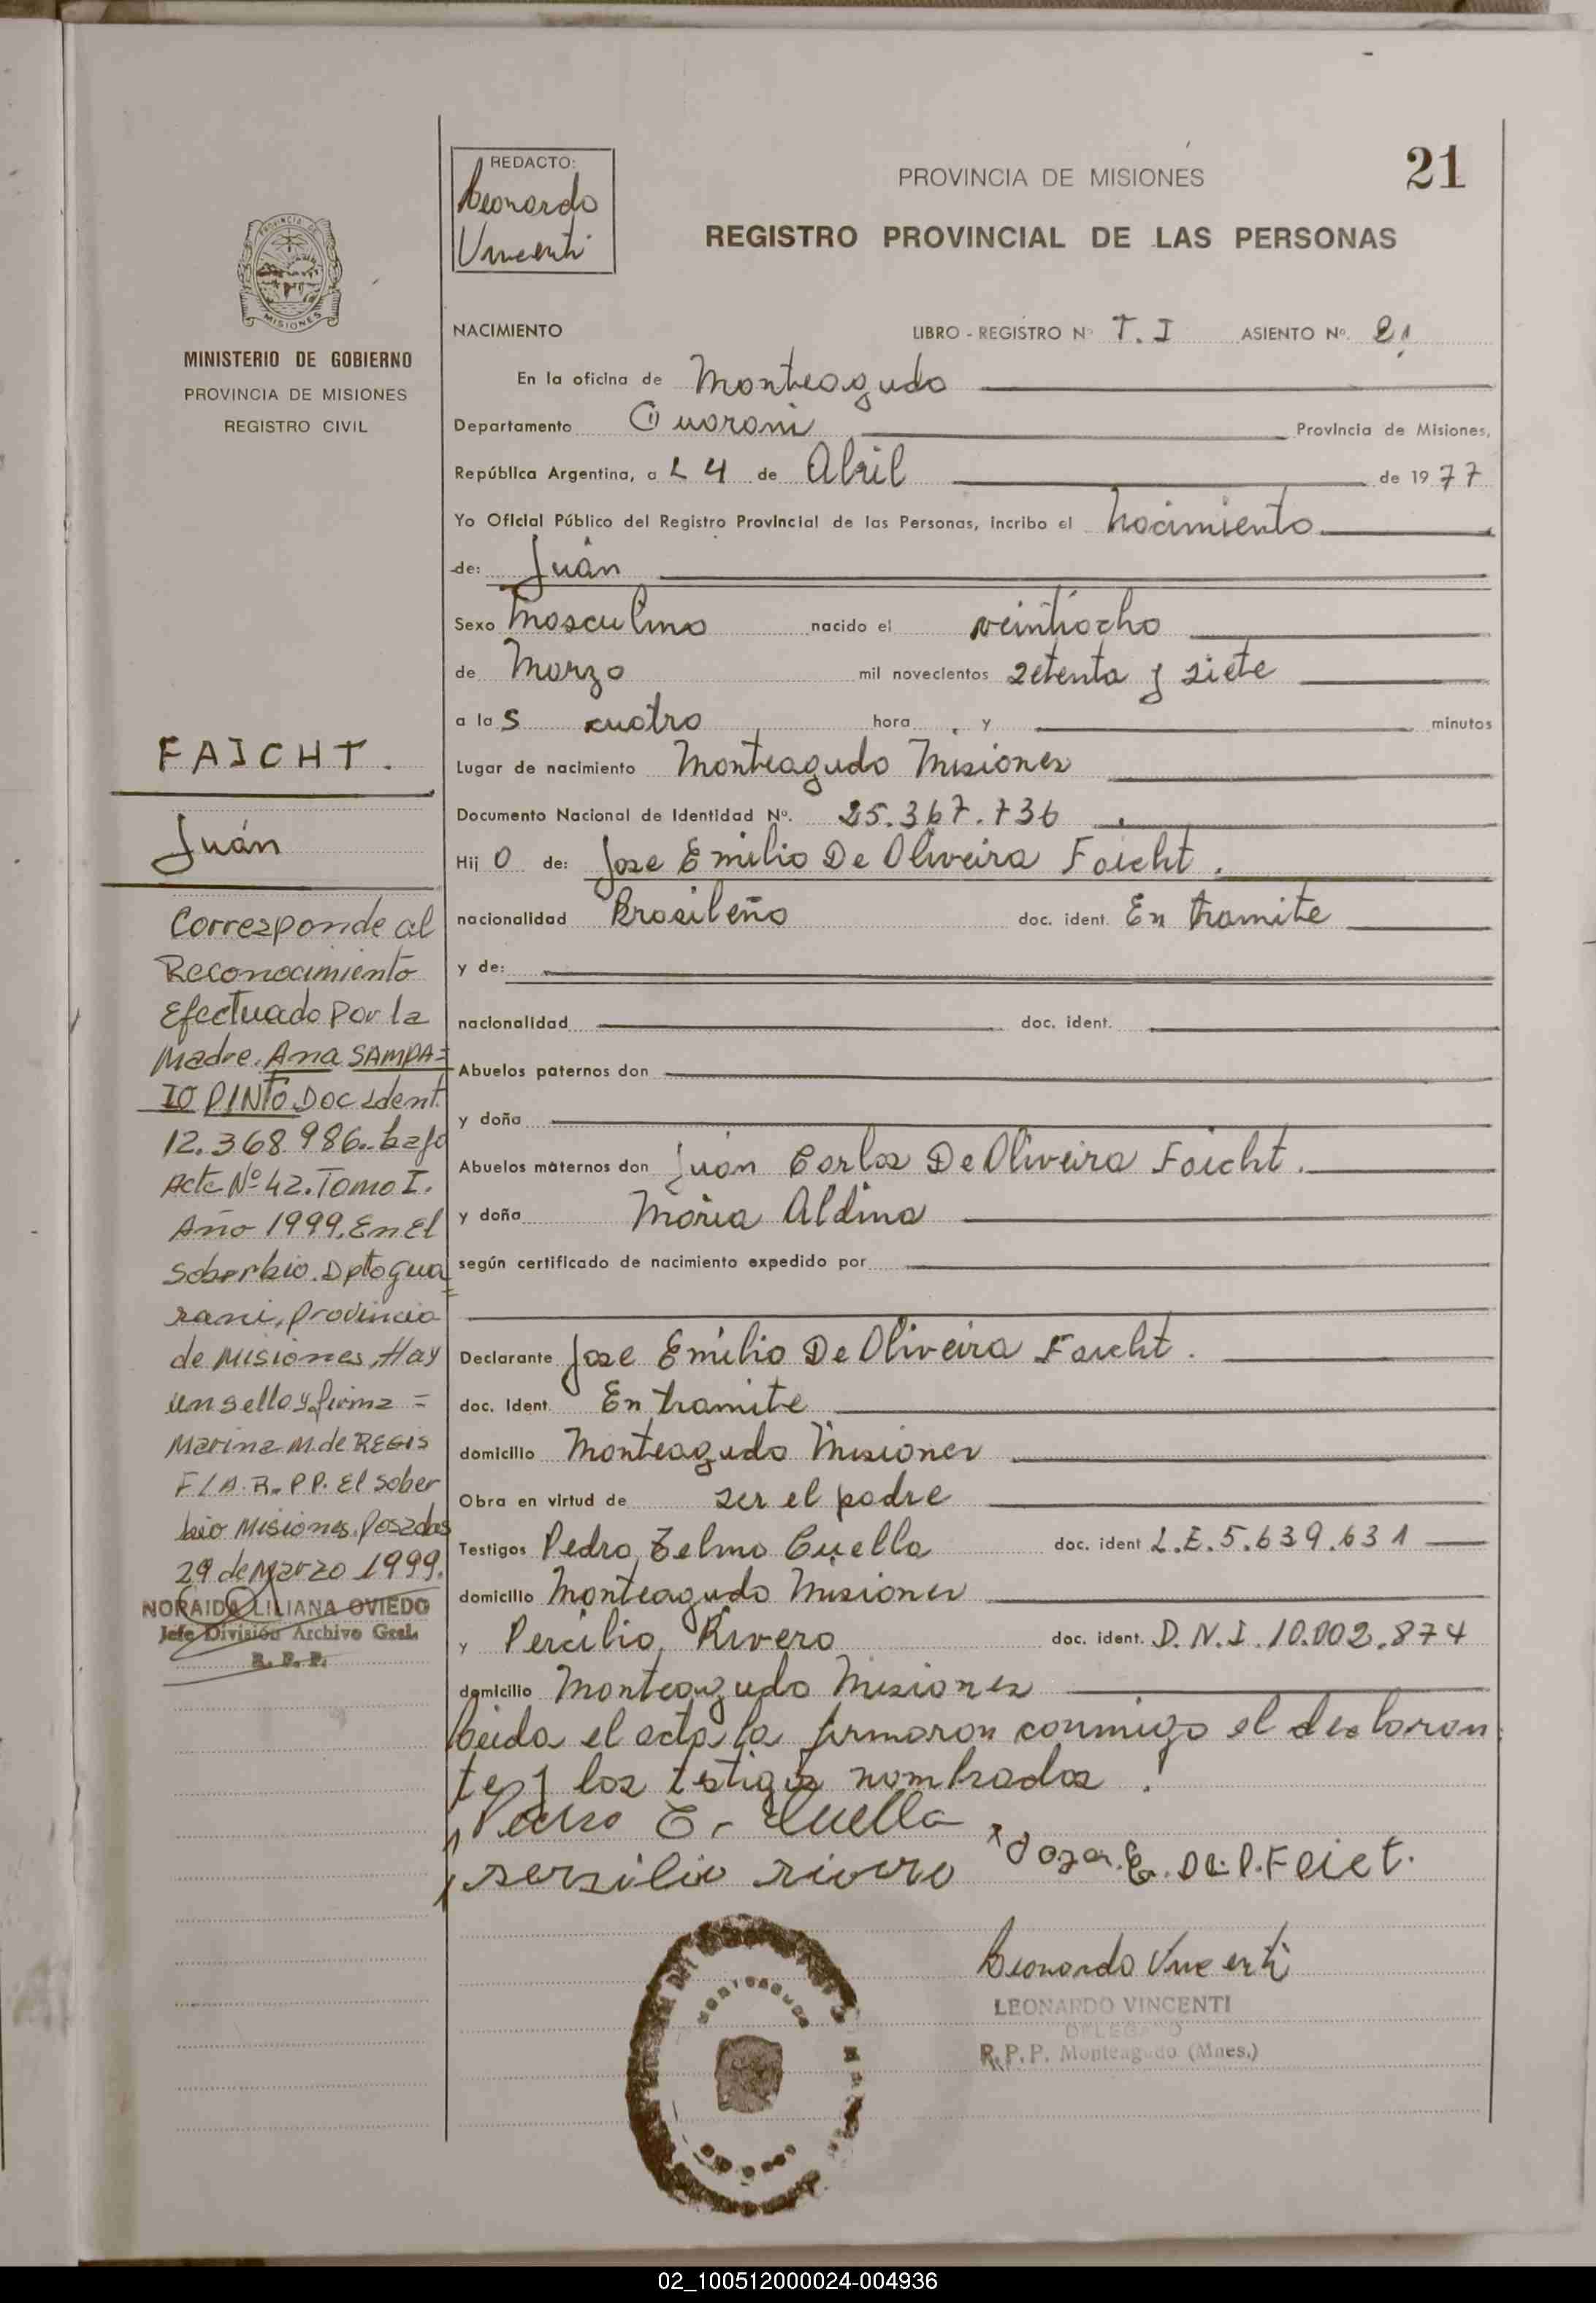 21
REDACTO:
Leonardo
Vincenti
PROVINCIA DE MISIONES
REGISTRO PROVINCIAL DE LAS PERSONAS
PROVINCIA DE
MISIONES
MINISTERIO DE GOBIERNO
PROVINCIA DE MISIONES
REGISTRO CIVIL
FAICHT.
Juán
Corresponde al
Reconocimiento
Efectuado Por la
Madre. Ana SAMPA=
IO PINTO Doc Ident.
12.368.986. bajo
Acta Nº 42. Tomo I.
Año 1999. En El
Soberbio. Dpto Gua
rani, Provincia
de Misiones, Hay
un sello y firma =
Marina M. de REGIS
R.P.P. El Sober
bio Misiones. Posadas
29 de Marzo 1999.
NORAIDA LILIANA OVIEDO
Jefe División Archivo Gral.
R. P. P.
NACIMIENTO LIBRO - REGISTRO Nº T. I ASIENTO Nº. 21
En la oficina de Monteagudo
Departamento Guarani Provincia de Misiones,
República Argentina, a 14 de Abril de 1977
Yo Oficial Público del Registro Provincial de las Personas, incribo el Nacimiento
de: Juán
Sexo Masculino nacido el veintiocho
de Marzo mil novecientos setenta y siete
a las cuatro hora y minutos
Lugar de nacimiento Monteagudo Misiones
Documento Nacional de Identidad Nº. 25.367.736
Hijo de: Jose Emilio De Oliveira Faicht.
nacionalidad Brasileño doc. ident. En tramite
y de:
nacionalidad doc. ident.
Abuelos paternos don
y doña
Abuelos maternos don Juán Carlos De Oliveira Faicht.
y doña Maria Aldina
según certificado de nacimiento expedido por
Declarante Jose Emilio De Oliveira Faicht.
doc. Ident. En tramite
domicilio Monteagudo Misiones
Obra en virtud de ser el padre
Testigos Pedro Telmo Cuella doc. ident L.E. 5.639.631
domicilio Monteagudo Misiones
y Percilio Rivero doc. ident. D.N.I. 10.002.874
domicilio Monteagudo Misiones
Leida el acta la firmaron conmigo el declaran
te y los testigos nombrados.
Pedro T. Cuella
persilio rivero
E. De. Feict.
Leonardo Vincenti
LEONARDO VINCENTI
DELEGADO
R.P.P. Monteagudo (Mnes.)
MONTEAGUDO
02_100512000024-004936